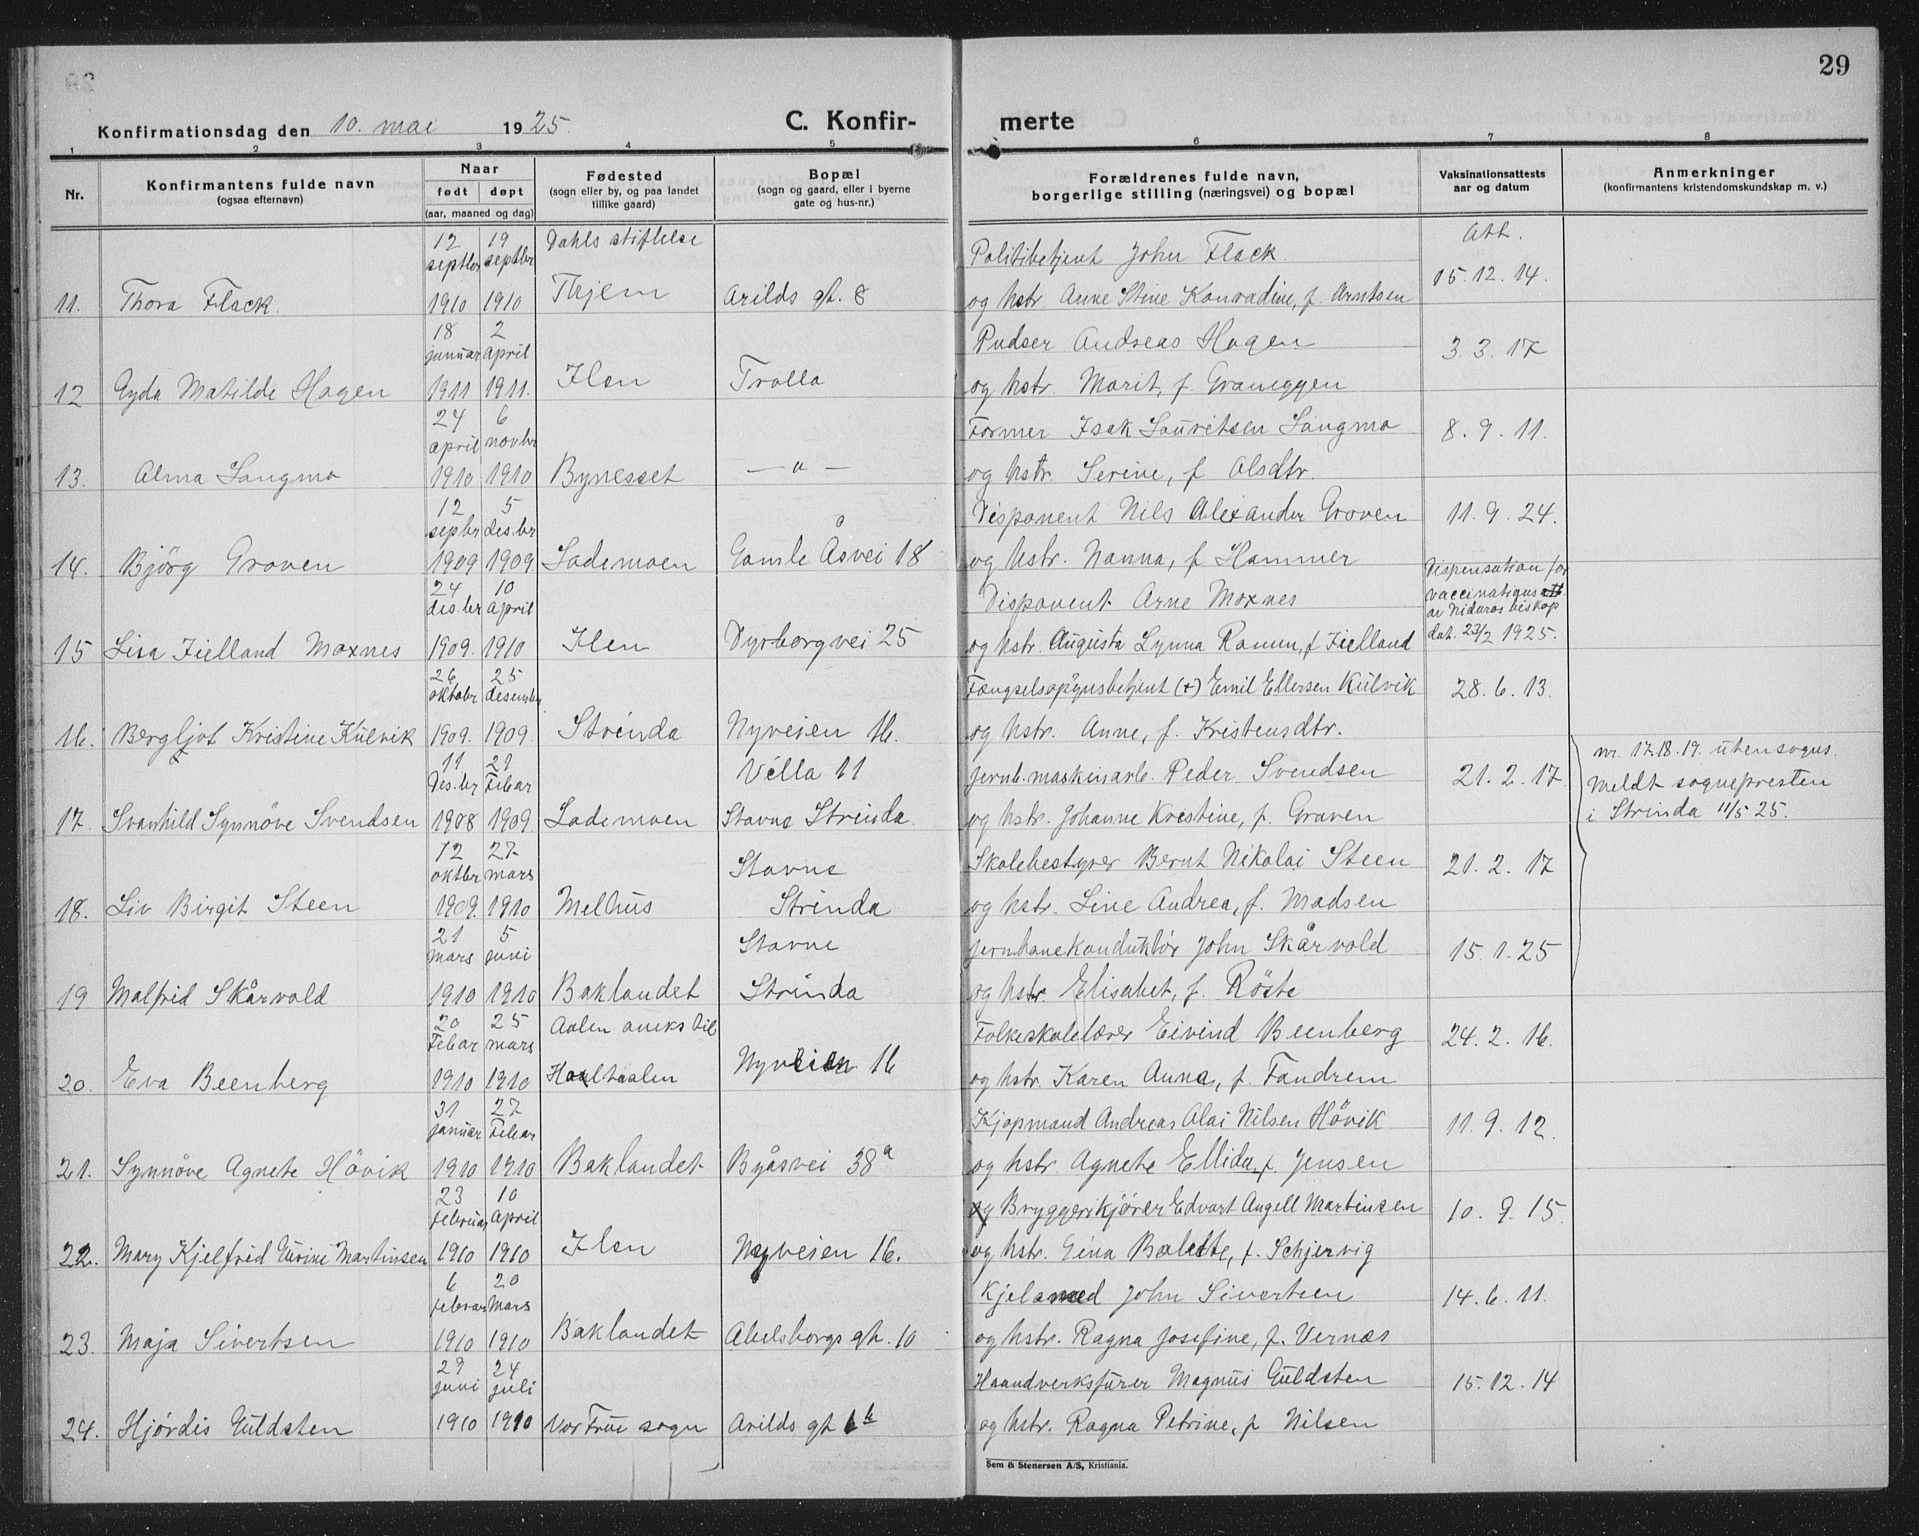 29
Konfirmationsdag den 10. mai 1925. C. Konfirmerte
1 2 3 4 5 6 7 8
Nr. Konfirmantens fulde navn (ogsaa efternavn) Naar født døpt (aar, maaned og dag) Fødested (sogn eller by, og paa landet tillike gaard) Bopæl (sogn og gaard, eller i byerne gate og hus-nr.) Forældrenes fulde navn, borgerlige stilling (næringsvei) og bopæl Vaksinationsattests aar og datum Anmerkninger (konfirmantens kristendomskundskap m. v.)
12 septbr 19 septbr Dahls stiftelse Politibetjent John Flack. Att. 15.12.14.
11. Thora Flack. 1910 1910 Arilds gt. 8 og hstr. Anne Stine Konradine, f. Arntsen
18 januar 2 April Pudser Andreas Hagen 3.3.17
12 Gyda Matilde Hagen 1911 1911. Ilen Trolla og hstr. Marit, f. Graneggen
24 april 6 novbr Former Isak Lauritsen Langmo 8.9.11.
13. Alma Langmo 1910 1910 Bynesset — " — og hstr. Serine, f Olsdtr.
12 septbr 5 des.br Disponent Nils Alexander Groven 11.9.24.
14. Bjørg Groven 1909 1909. Lademoen Gamle Åsvei 18 og hstr. Nanna, f Hammer
24 des.br 10 April Disponent Arne Moxnes Dispensation for vaccinations att av Nidaros biskop
15 Lisa Fjelland Moxnes 1909. 1910 Ilen Dyrborgvei 25 og hstr. Augusta Lynna Ramm, f Fjelland dat. 23/2 1925.
26 oktobr 25 desembr Fængselsopsynsbetjent (+) Emil Ellersen Kulvik 28.6.13.
16. Bergljot Kristine Kulvik 1909. 1909. Strinda Nyveien 16. og hstr. Anne, f. Kristensdtr.
11 Des.br 21 Febar Villa 11 Jernb.maskinarb. Peder Svendsen 21.2.17 nr. 17.18.19. utensogns. meldt sognepresten
17. Svanhild Synnöve Svendsen 1908 1909. Lademoen Stavne Strinda. og hstr. Johanne Kristine, f. Graven i Strinda 11/5 25.
12 oktbr 27 mars Stavne Skolebestyrer Bernt Nikolai Steen 21.2.17
18. Liv Birgit Steen 1909. 1910 Melhus Strinda og hstr. Line Andrea, f. Madsen
21 Mars 5 juni Stavne Jernbanekonduktør John Skårvold 15.1.25
19 Malfrid Skårvold 1910 1910 Baklandet Strinda og hstr. Elisabet, f. Röste
20 Febar 25 mars Aalen aneks til Folkeskolelærer Eivind Beenberg 24.2.16.
20. Eva Beenberg 1910 1910 Holtaalen Nyveien 16 og hstr. Karen Anna, f. Tandrem
31 januar 27 Febar Kjøpmand Andreas Olai Nilsen Hövik 11.9.12.
21. Synnöve Agnete Hövik 1910 1910 Baklandet Byåsvei 38a og hstr. Agnete Ellida, f. Jensen
23 februar 10 April og Bryggerikjörer Edvart Angell Martinsen 10.9.15.
22. Mary Kjelfrid Gurine Martinsen 1910 1910 Ilen Nyveien 16. og hstr. Gina Bolette, f. Schjervig
6 februar 20 Mars Kjelsmed John Sivertsen 14.6.11.
23. Maja Sivertsen 1910 1910 Baklandet Abelsborgs gt. 10 og hstr. Ragna Josefine, f. Vernæs
29 juni 24 juli Haandverksfører Magnus Guldsten 15.12.14
24. Hjördis Guldsten 1910 1910 Vor Frue sogn Arilds gt 6b og hstr. Ragna Petrine, f Nilsen
Sem & Stenersen A/S, Kristiania.